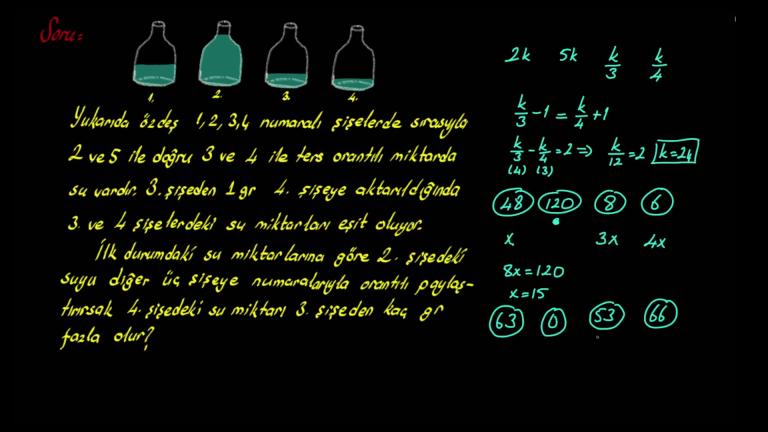 Soru:
1. 2. 3. 4.
Yukarıda özdeş 1,2,3,4 numaralı şişelerde sırasıyla
2 ve 5 ile doğru 3 ve 4 ile ters orantılı miktarda
su vardır. 3. şişeden 1 gr 4. şişeye aktarıldığında
3. ve 4 şişelerdeki su miktarları eşit oluyor.
İlk durumdaki su miktarlarına göre 2. şişedeki
suyu diğer üç şişeye numaralarıyla orantılı paylaş-
tırırsak 4. şişedeki su miktarı 3. şişeden kaç gr
fazla olur?
2k 5k k/3 k/4
k/3 - 1 = k/4 + 1
k/3 - k/4 = 2 ⇒ k/12 = 2 k=24
(4) (3)
48 120 8 6
x 3x 4x
8x = 120
x = 15
63 0 53 66